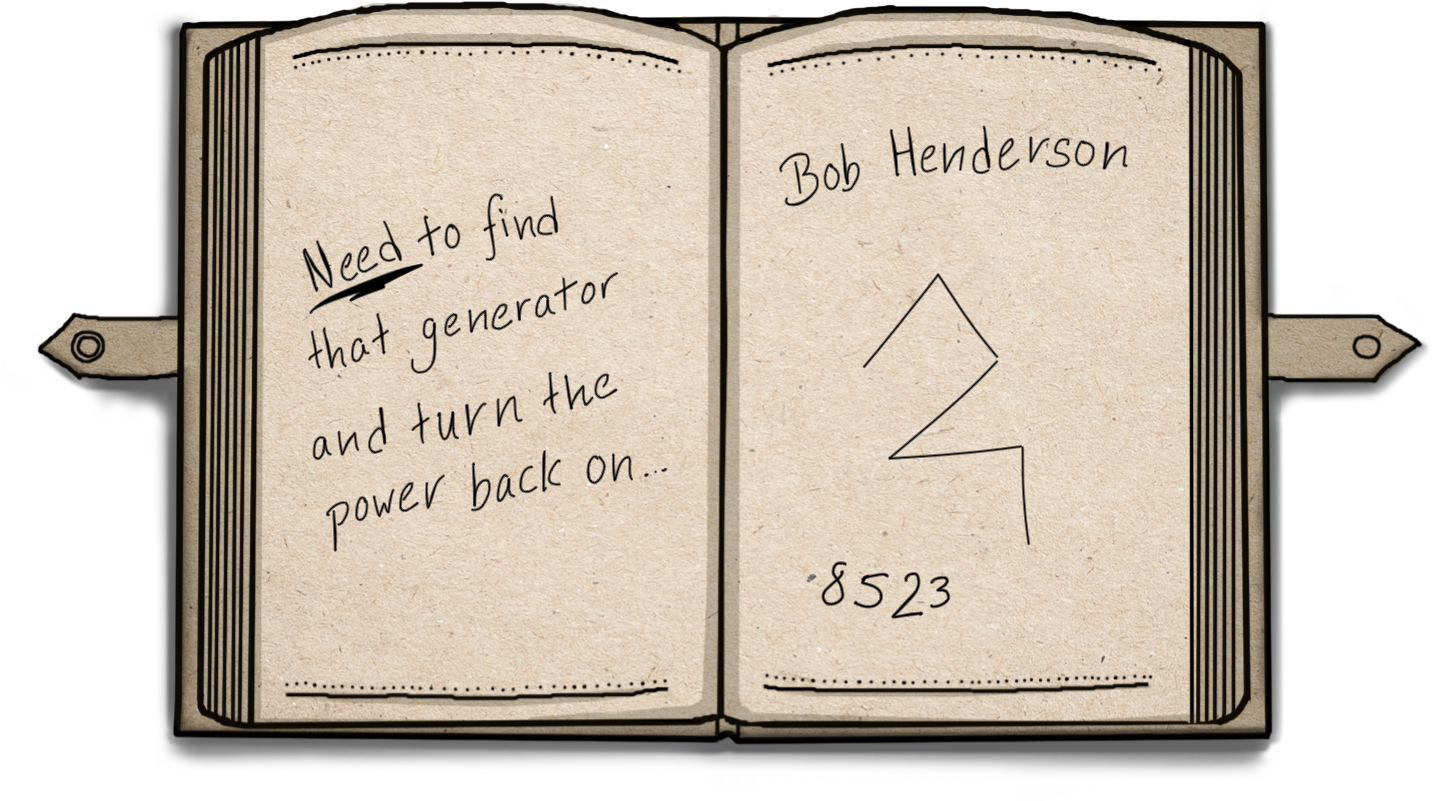 Need to find
that generator
and turn the
power back on...
Bob Henderson
8523